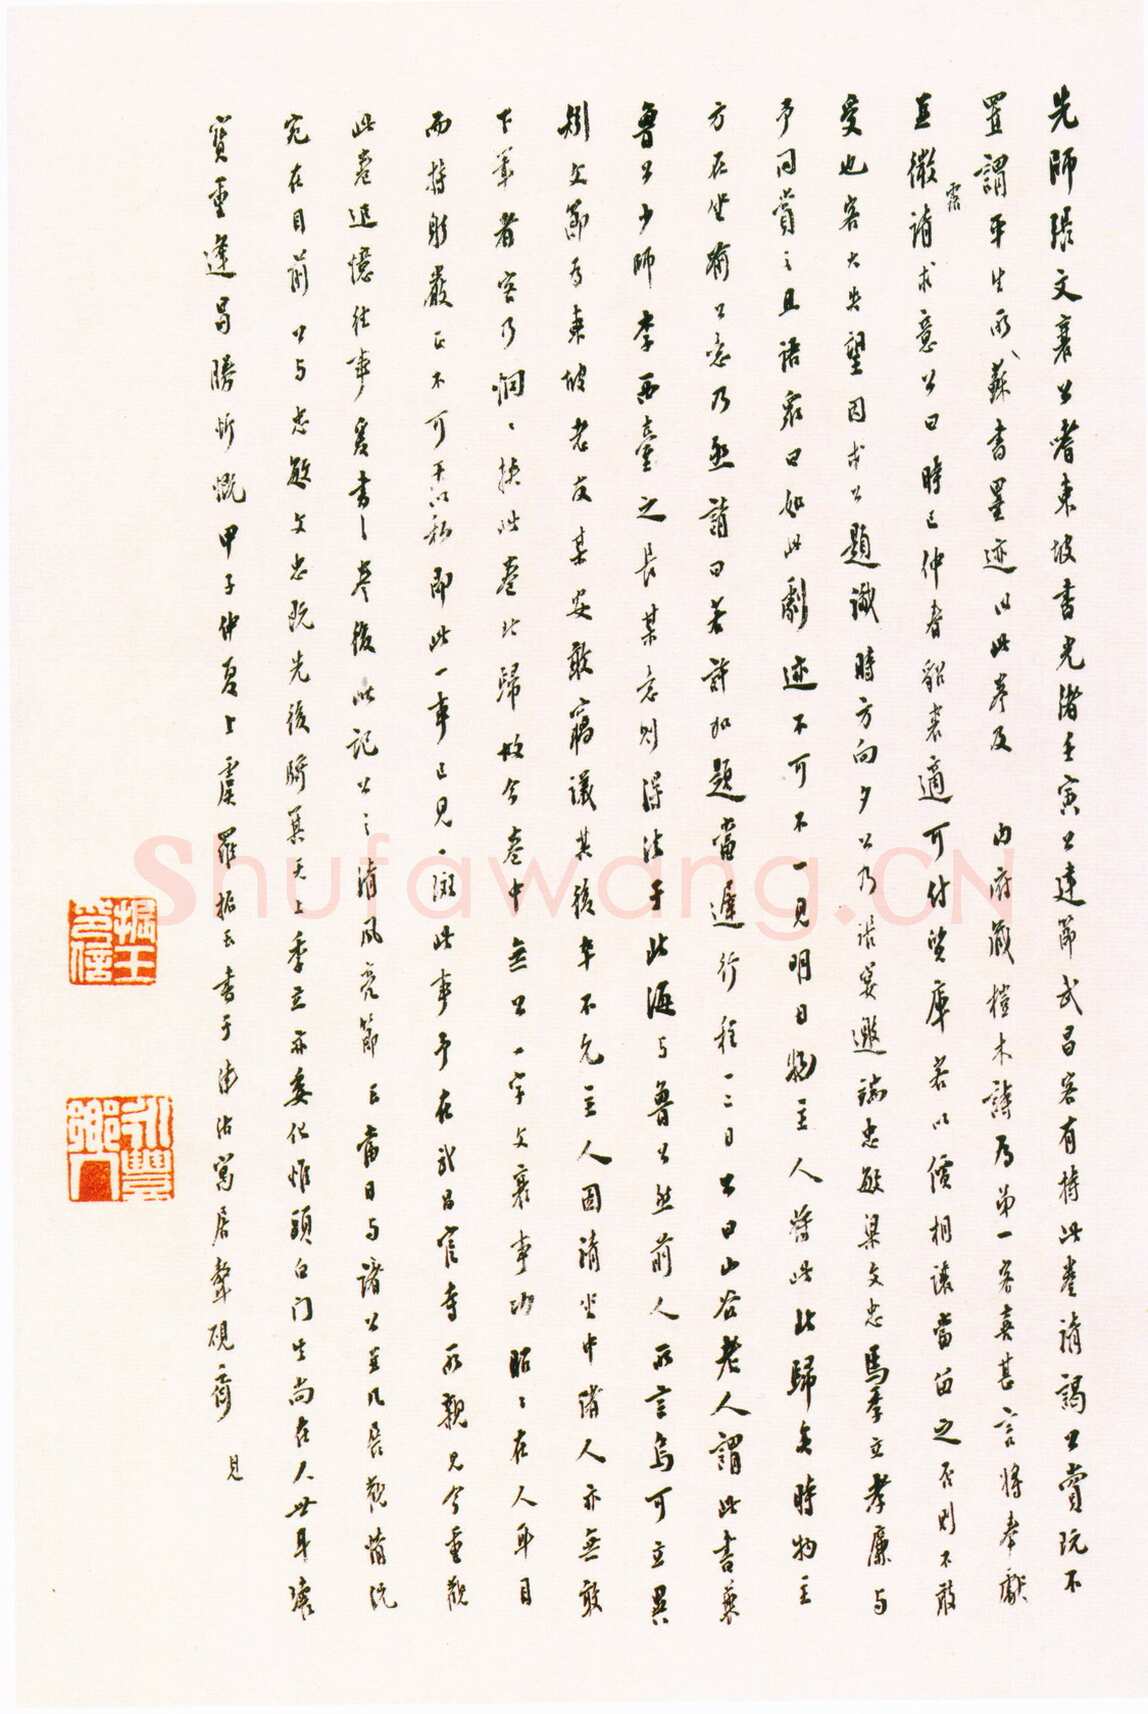 先師張文襄公嗜東坡書光緒壬寅公建節武昌客有持此卷請謁公賞玩不
置謂平生所見蘇書墨迹以此卷及 內府藏榿木詩為第一客喜甚言將奉獻
並微露請求意公曰時已仲春貂裘適可付質庫若以價相讓當留之否則不敢
受也客大失望因求公題識時方向夕公乃張宴邀端忠敏梁文忠馬季立孝廉與
予同賞之且語眾曰如此劇迹不可不一見明日物主人將此北歸矣時物主
方在坐喻公意乃亟請曰若許加題當遲行程一二日公曰山谷老人謂此書兼
魯公少師李西臺之長某意則得法于北海與魯公然前人所言烏可立異
矧文節為東坡老友某安敢竊議其後卒不允主人固請坐中諸人亦無敢
下筆者客乃惘惘挾此卷北歸故今卷中無公一字文襄事功昭昭在人耳目
而持躬嚴正不可干以私即此一事已見一斑此事予在武昌官寺所親見今重觀
此卷追憶往事爰書之卷後以記公之清風亮節且當日與諸公並几展觀情況
宛在目前公與忠敏文忠既先後騎箕天上季立亦委化惟頭白門生尚在人世耳壞
寶重逢曷勝忻慨甲子仲夏上虞羅振玉書于津沽寓居聱硯齋
見
振玉印信
永豐鄉人
Shufawang.CN